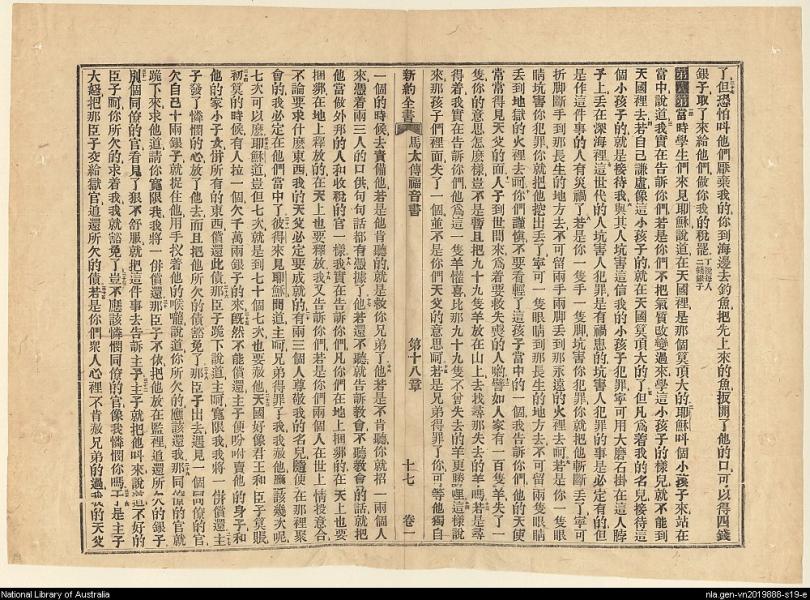 了但恐怕叫他們厭棄我的你到海邊去釣魚把先上來的魚扳開了他的口可以得四錢
銀子取了來給他們做你我的稅罷
第八章當時學生們來見耶穌說道在天國裡是那個莫頂大的耶穌叫個小孩子來站在
當中說道我實在告訴你們若是你們不把氣質改變過來學這小孩子的樣兒就不能到
天國裡去若自己謙虛像這小孩子的就在天國莫頂大的了但凡爲着我的名兒接待這
個小孩子的就是接待我與其人坑害這信我的小孩子犯罪寧可用大磨石掛在這人脖
子上丟在深海裡這世代的人坑害人犯罪是有禍患的坑害人犯罪的事是必定有的但
是作這件事的人有災禍了若是你一隻手一隻脚坑害你犯罪你就把他斬斷丟了寧可
折脚斷手到那長生的地方去不可留兩手兩脚丟到那永遠的火裡去呵若是你一隻眼
睛坑害你犯罪你就把他挖出丟了寧可一隻眼睛到那長生的地方去不可留兩隻眼睛
丟到地獄的火裡去呵你們謹慎不要看輕了這孩子當中的一個我告訴你們他的天使
常常得見天父的面人子到世間來爲着要救失喪的人喲譬如人家有一百隻羊失了一
隻你的意思怎麼樣豈不是暫且把九十九隻羊放在山上去找尋那失去的羊嗎若是尋
得着我實在告訴你們他爲這一隻羊懽喜比那九十九隻不曾失去的羊更勝哩這樣說
來那孩子們裡面失了一個並不是你們天父的意思呵若是兄弟得罪了你可等他獨自
新約全書
馬太傳福音書
第十八章
十七
卷一
一個的時候去責備他若是他肯聽的就是救你兄弟了他若是不肯聽你就招一兩個人
來憑着兩三人的口供句句話都有憑據了他若還不聽就告訴教會不聽教會的話就把
他當做外邦的人和收稅的官一樣我實在告訴你們凡你們在地上捆綁的在天上也要
捆綁在地上釋放的在天上也要釋放我又告訴你們若是你們兩個人在世上情投意合
不論要求什麽東西我的天父必定要成就的有兩三個人尊敬我的名兒隨便在那裡聚
會的我必定在他們當中了彼得來見耶穌問道主呵兄弟得罪了我我赦他應該幾次呢
七次可以麽耶穌道豈但七次就是到七十個七次也要赦他天國好像君王和臣子算賬
初算的時候有人拉一個欠千萬兩銀子的來旣然不能償還主子便吩咐賣他的身子和
他的家小子女併所有的東西償還此債那臣子跪下說道主呵寬限我我將一併償還主
子發了憐憫的心放了他去而且把他所欠的債豁免了那臣子出去遇見一個同僚的官
欠自己十兩銀子就捉住他用手扠着他的喉嚨說道你所欠的應該還我那同僚的官就
跪下來求他道請你寬限我我將一併償還那臣子不依把他放在監裡道還所欠的銀子
別個同僚的官看見了狠不舒服就把這件事去告訴主子主子就把他叫來說道不好的
臣子呵你所欠的求着我我就豁免了豈不應該憐憫同僚的官像我憐憫你嗎于是主子
大怒把那臣子交給獄官道還所欠的債若是你們衆人心裡不肯赦兄弟的過我的天父
National Library of Australia
nla.gen-vn2019888-s19-e